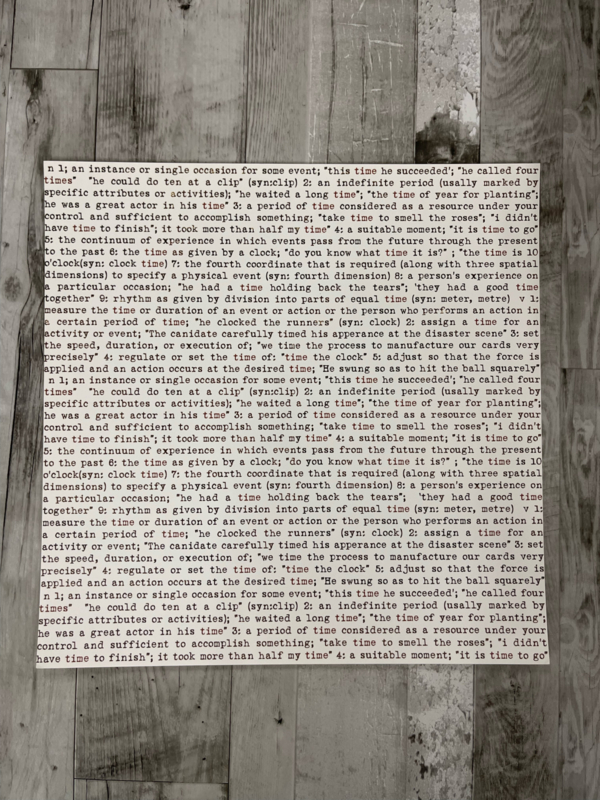 n 1; an instance or single occasion for some event; "this time he succeeded'; "he called four
times" "he could do ten at a clip" (syn:clip) 2: an indefinite period (usally marked by
specific attributes or activities); "he waited a long time"; "the time of year for planting";
he was a great actor in his time" 3: a period of time considered as a resource under your
control and sufficient to accomplish something; "take time to smell the roses"; "i didn't
have time to finish"; it took more than half my time" 4: a suitable moment; "it is time to go"
5: the continuum of experience in which events pass from the future through the present
to the past 6: the time as given by a clock; "do you know what time it is?" ; "the time is 10
o'clock(syn: clock time) 7: the fourth coordinate that is required (along with three spatial
dimensions) to specify a physical event (syn: fourth dimension) 8: a person's experience on
a particular occasion; "he had a time holding back the tears"; 'they had a good time
together" 9: rhythm as given by division into parts of equal time (syn: meter, metre) v 1:
measure the time or duration of an event or action or the person who performs an action in
a certain period of time; "he clocked the runners" (syn: clock) 2: assign a time for an
activity or event; "The canidate carefully timed his apperance at the disaster scene" 3: set
the speed, duration, or execution of; "we time the process to manufacture our cards very
precisely" 4: regulate or set the time of: "time the clock" 5: adjust so that the force is
applied and an action occurs at the desired time; "He swung so as to hit the ball squarely"
n 1; an instance or single occasion for some event; "this time he succeeded'; "he called four
times" "he could do ten at a clip" (syn:clip) 2: an indefinite period (usally marked by
specific attributes or activities); "he waited a long time"; "the time of year for planting";
he was a great actor in his time" 3: a period of time considered as a resource under your
control and sufficient to accomplish something; "take time to smell the roses"; "i didn't
have time to finish"; it took more than half my time" 4: a suitable moment; "it is time to go"
5: the continuum of experience in which events pass from the future through the present
to the past 6: the time as given by a clock; "do you know what time it is?" ; "the time is 10
o'clock(syn: clock time) 7: the fourth coordinate that is required (along with three spatial
dimensions) to specify a physical event (syn: fourth dimension) 8: a person's experience on
a particular occasion; "he had a time holding back the tears"; 'they had a good time
together" 9: rhythm as given by division into parts of equal time (syn: meter, metre) v 1:
measure the time or duration of an event or action or the person who performs an action in
a certain period of time; "he clocked the runners" (syn: clock) 2: assign a time for an
activity or event; "The canidate carefully timed his apperance at the disaster scene" 3: set
the speed, duration, or execution of; "we time the process to manufacture our cards very
precisely" 4: regulate or set the time of: "time the clock" 5: adjust so that the force is
applied and an action occurs at the desired time; "He swung so as to hit the ball squarely"
n 1; an instance or single occasion for some event; "this time he succeeded'; "he called four
times" "he could do ten at a clip" (syn:clip) 2: an indefinite period (usally marked by
specific attributes or activities); "he waited a long time"; "the time of year for planting";
he was a great actor in his time" 3: a period of time considered as a resource under your
control and sufficient to accomplish something; "take time to smell the roses"; "i didn't
have time to finish"; it took more than half my time" 4: a suitable moment; "it is time to go"